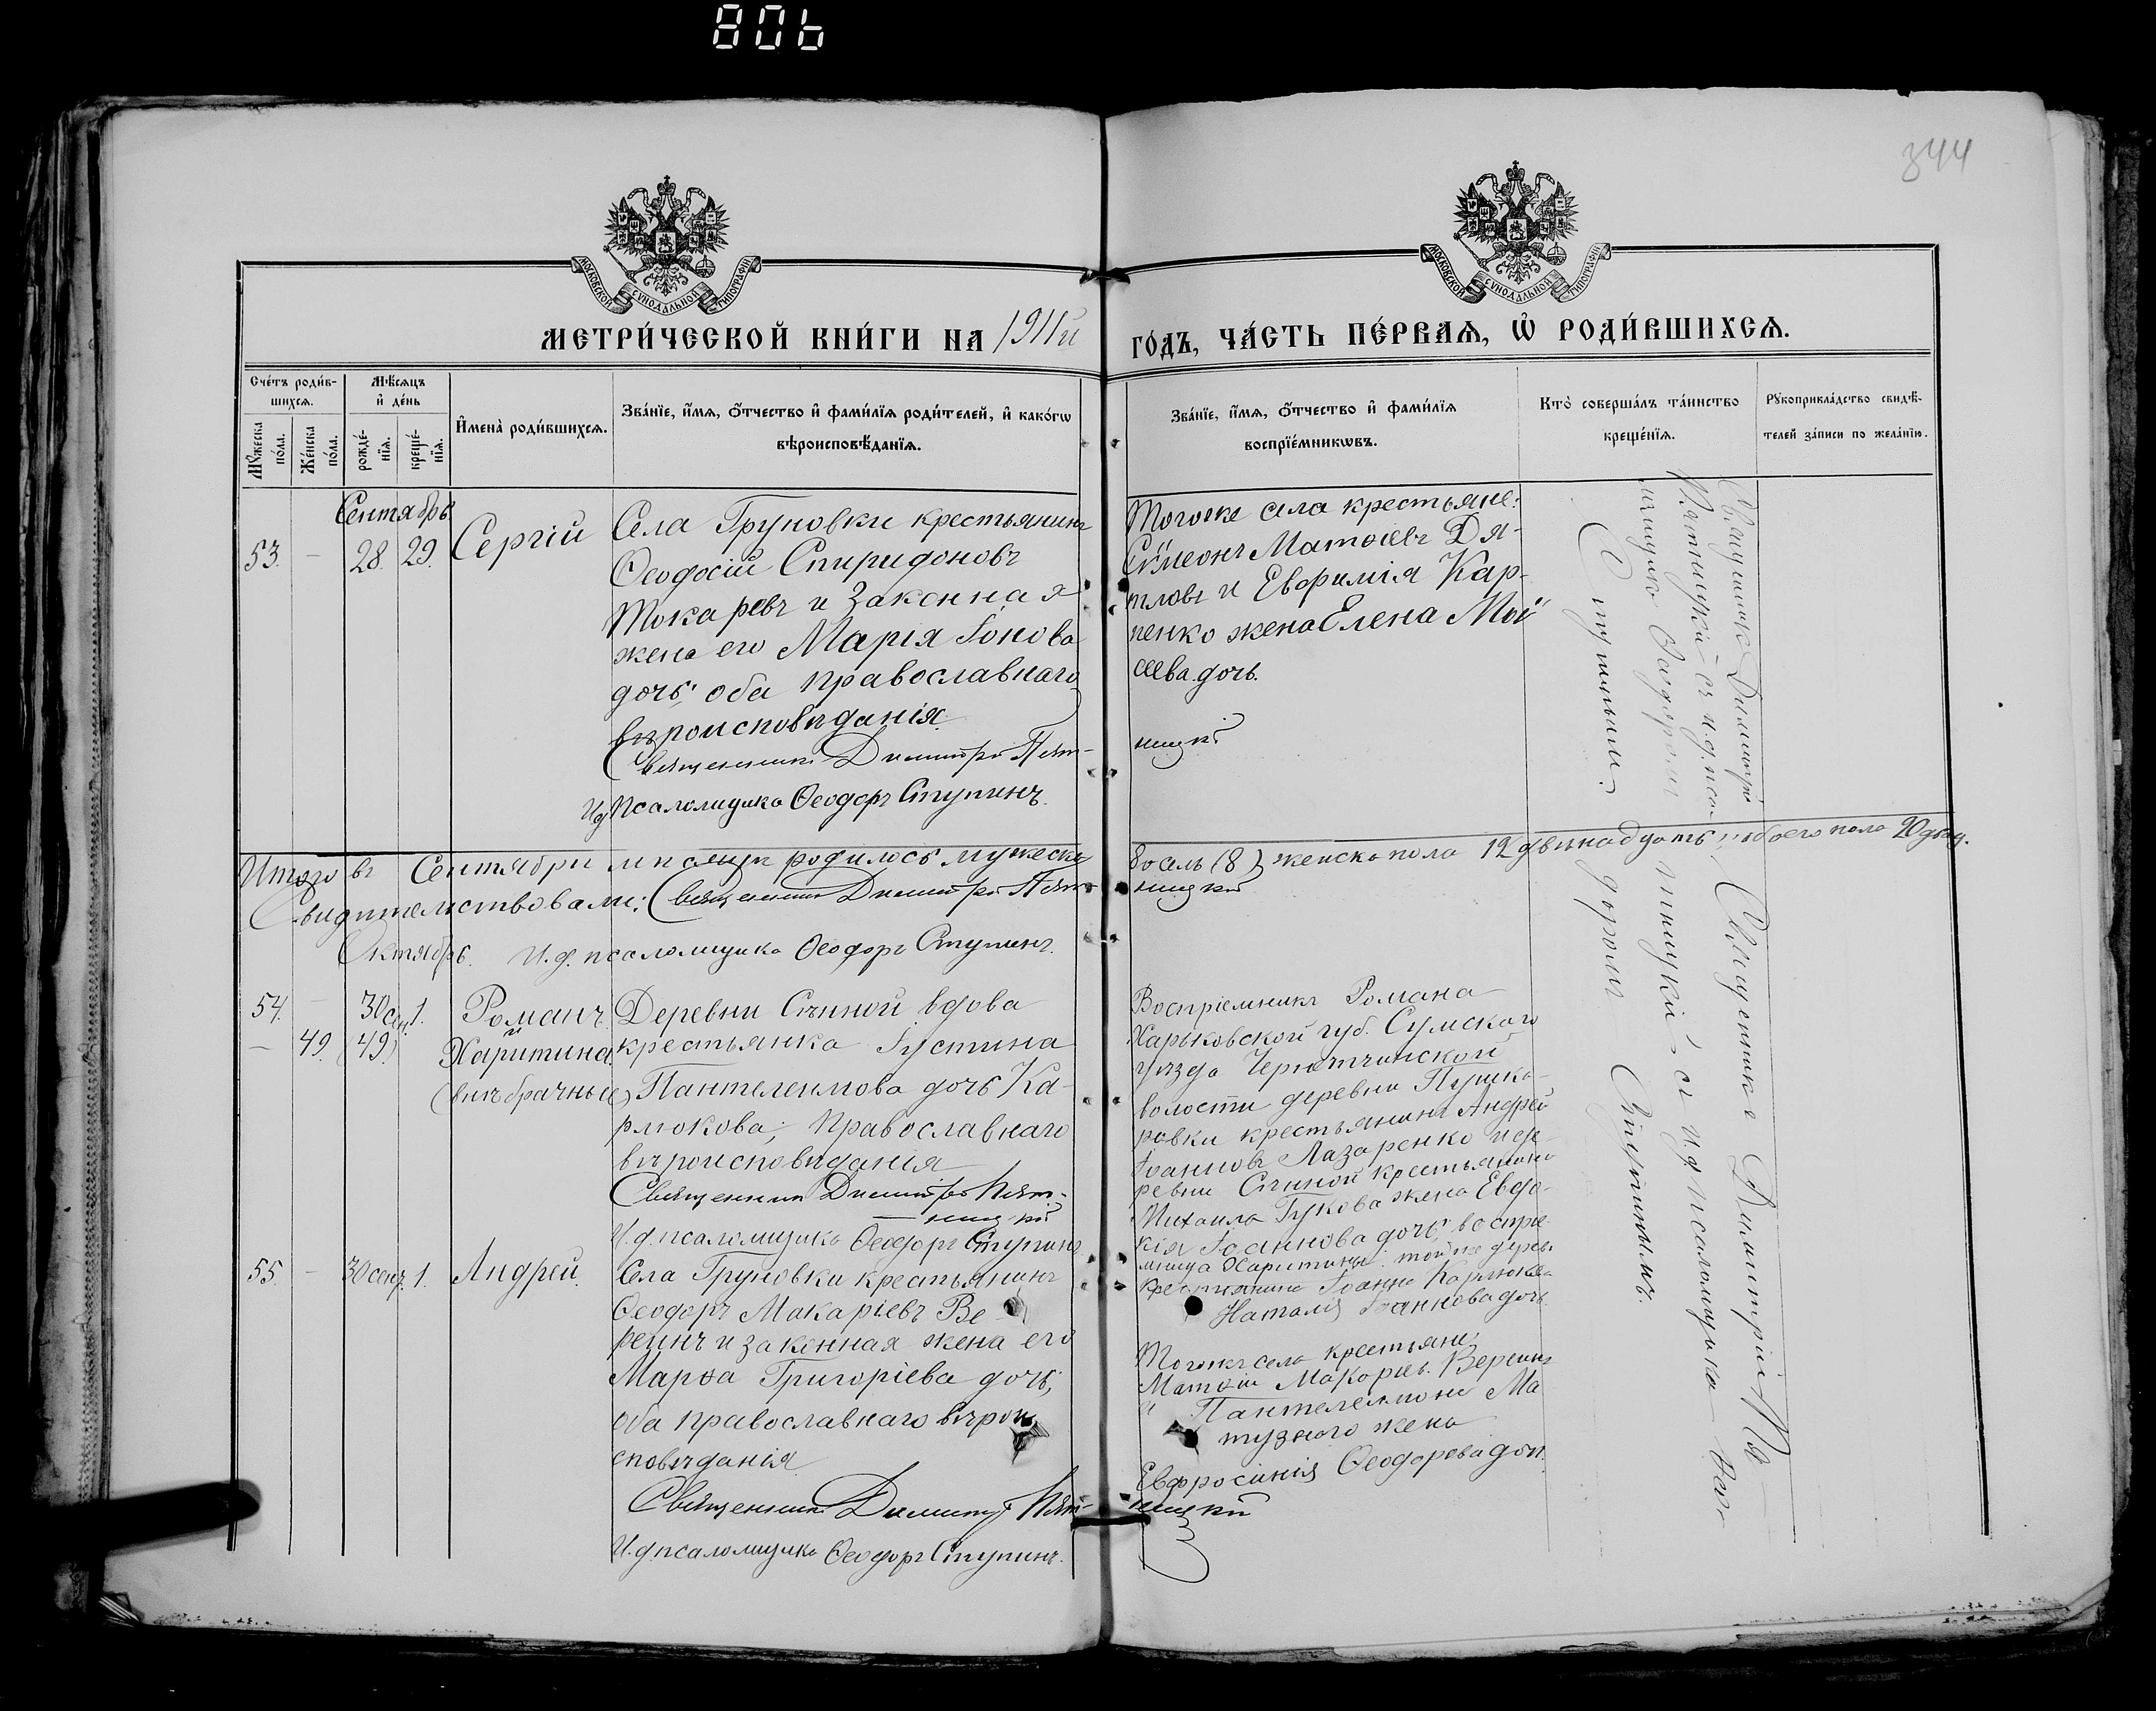 806
344
МОСКОВСКОЙ СѴНОДАЛЬНОЙ ТИПОГРАФІИ
МОСКОВСКОЙ СѴНОДАЛЬНОЙ ТИПОГРАФІИ
МЕТРИ́ЧЕСКОЙ КНИ́ГИ НА 1911й ГО́ДЪ, ЧА́СТЬ ПЕ́РВАѦ, Ѡ РОДИ́ВШИХСѦ.
Сче́тъ роди́в-
шихсѧ.
Мꙋ́жеска по́ла.
Же́нска по́ла.
Мѣ́сѧцъ
и҆ де́нь
рожде́-
нїѧ.
креще́-
нїѧ.
И҆мена̀ роди́вшихсѧ.
Зва́нїе, и҆́мѧ, ѻ҆́тчество и҆ фами́лїѧ роди́телей, и҆ како́гѡ
вѣроисповѣ́данїѧ.
Зва́нїе, и҆́мѧ, ѻ҆́тчество и҆ фами́лїѧ
воспрїе́мникѡвъ.
Кто̀ соверша́лъ та́инство
креще́нїѧ.
Рꙋкоприкла́дство свидѣ́-
телей за́писи по жела́нїю.
Сентябрь
53. — 28. 29. Сергій
Села Груновки крестьянинъ
Ѳеодосій Спиридоновъ
Токаревъ и законная
жена его Марія Іонова
дочь; оба православнаго
вѣроисповѣданія.
Священникъ Димитрій Пят-
ницкій
И д Псаломщика Ѳеодоръ Ступинъ.
Тогоже села крестьяне:
Сѵмеонъ Матѳіевъ Дя-
тловъ и Евфимія Кар-
пенко жена Елена Мои
сеева дочь.
Священникъ Димитрій
Пятницкій съ и. д. псал-
мщика Ѳеодоромъ
Ступинымъ.
Итого въ Сентябрѣ мѣсяцѣ родилось мужеска восемь (8) женска пола 12 двѣнадцать, обоего пола 20 двад.
Свидѣтельствовали: Священникъ Димитрій Пятницкій
Октябрь. И. д. псаломщика Ѳеодоръ Ступинъ.
54. — 30 сен. 1. Романъ
и
— 49. (49) Харитина
(внѣбрачные)
Деревни Сѣнной вдова
крестьянка Іустина
Пантелеимова дочь Ка-
рлюкова; православнаго
вѣроисповѣданія
Священникъ Димитрій Пят-
ницкій
И. д. псаломщика Ѳеодоръ Ступинъ
Воспріемники Романа
Харьковской губ. Сумского
уѣзда
волости деревни Пушка-
ровки крестьянинъ Андрей
Іоанновъ Лазаренко и де-
ревни Сѣнной крестьянина
Михаила Гукова жена Евдо-
кія Іоаннова дочь; воспріе-
мница Харитины: той же деревн
крестьянина Іоанна Карлюкова
Наталія Іоаннова дочь
55. — 30 сент. 1. Андрей.
Села Груновки крестьянинъ
Ѳеодоръ Макаріевъ Ве-
реинъ и законная жена его
Марѳа Григоріева дочь;
оба православнаго вѣрои
сповѣданія.
Священникъ Димитрій Пят-
ницкій
И. д. псаломщика Ѳеодоръ Ступинъ.
Тогоже села крестьяне:
Матѳій Макаріев. Вереинъ
и Пантелеимона Ма
тузного жена
Евфросинія Ѳеодорева доч.
Священникъ Димитрій Пя-
тницкій съ и д псаломщика Ѳео-
доромъ Ступинымъ.